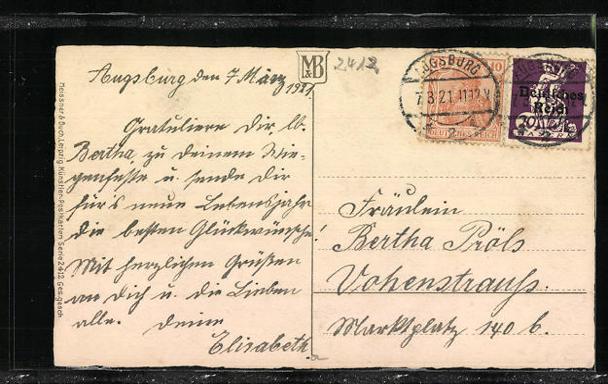 Augsburg den 7 März
1921
Gratuliere Dir, lb.
Bertha, zu deinem Wie-
genfeste u. sende Dir
für's neue Lebensjahr
die besten Glückwünsche!
Mit herzlichen Grüßen
an Dich u. die Lieben
alle. Deine
Elisabeth
MB
2412
AUGSBURG
7.3.21.11-12V
10
DEUTSCHES REICH
Deutsches
Reich
Fräulein
Bertha Pröls
Vohenstrauß.
Marktplatz 140 b.
Meissner & Buch, Leipzig Künstler-Postkarten Serie 2412 Ges. gesch.